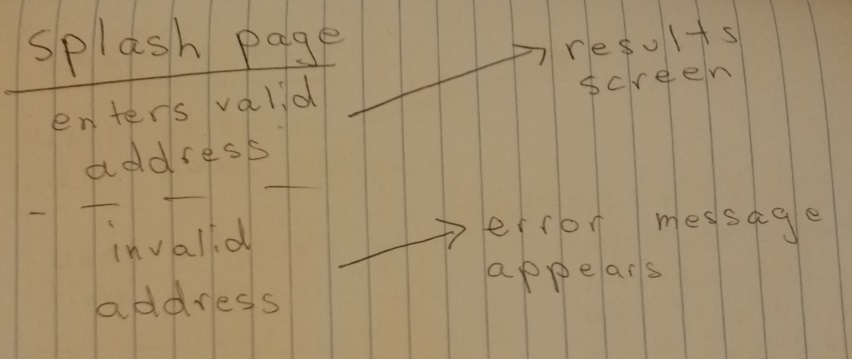 splash page
enters valid
address
results
screen
invalid
address
error message
appears